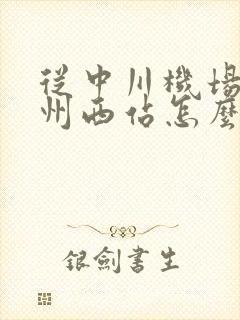 從中川機場
州西站怎麼
銀劍書生